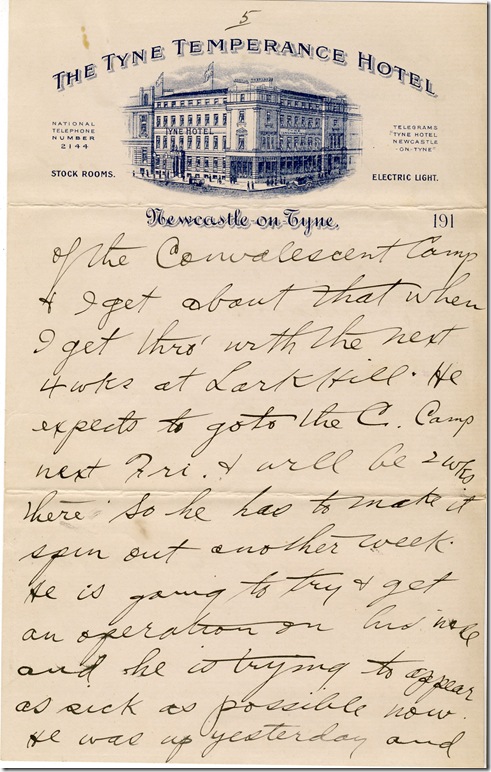 5
THE TYNE TEMPERANCE HOTEL
TYNE HOTEL
NATIONAL
TELEPHONE
NUMBER
2144
TELEGRAMS
"TYNE HOTEL
NEWCASTLE
-ON-TYNE"
STOCK ROOMS.
ELECTRIC LIGHT.
Newcastle-on-Tyne,
191
of the Convalescent Camp
& I get about that when
I get thro' with the next
4 wks at Lark Hill. He
expects to go to the C. Camp
next Fri. & will be 2 wks
there. So he has to make it
spin out another week.
He is going to try & get
an operation on his
and he is trying to appear
as sick as possible now.
He was up yesterday and